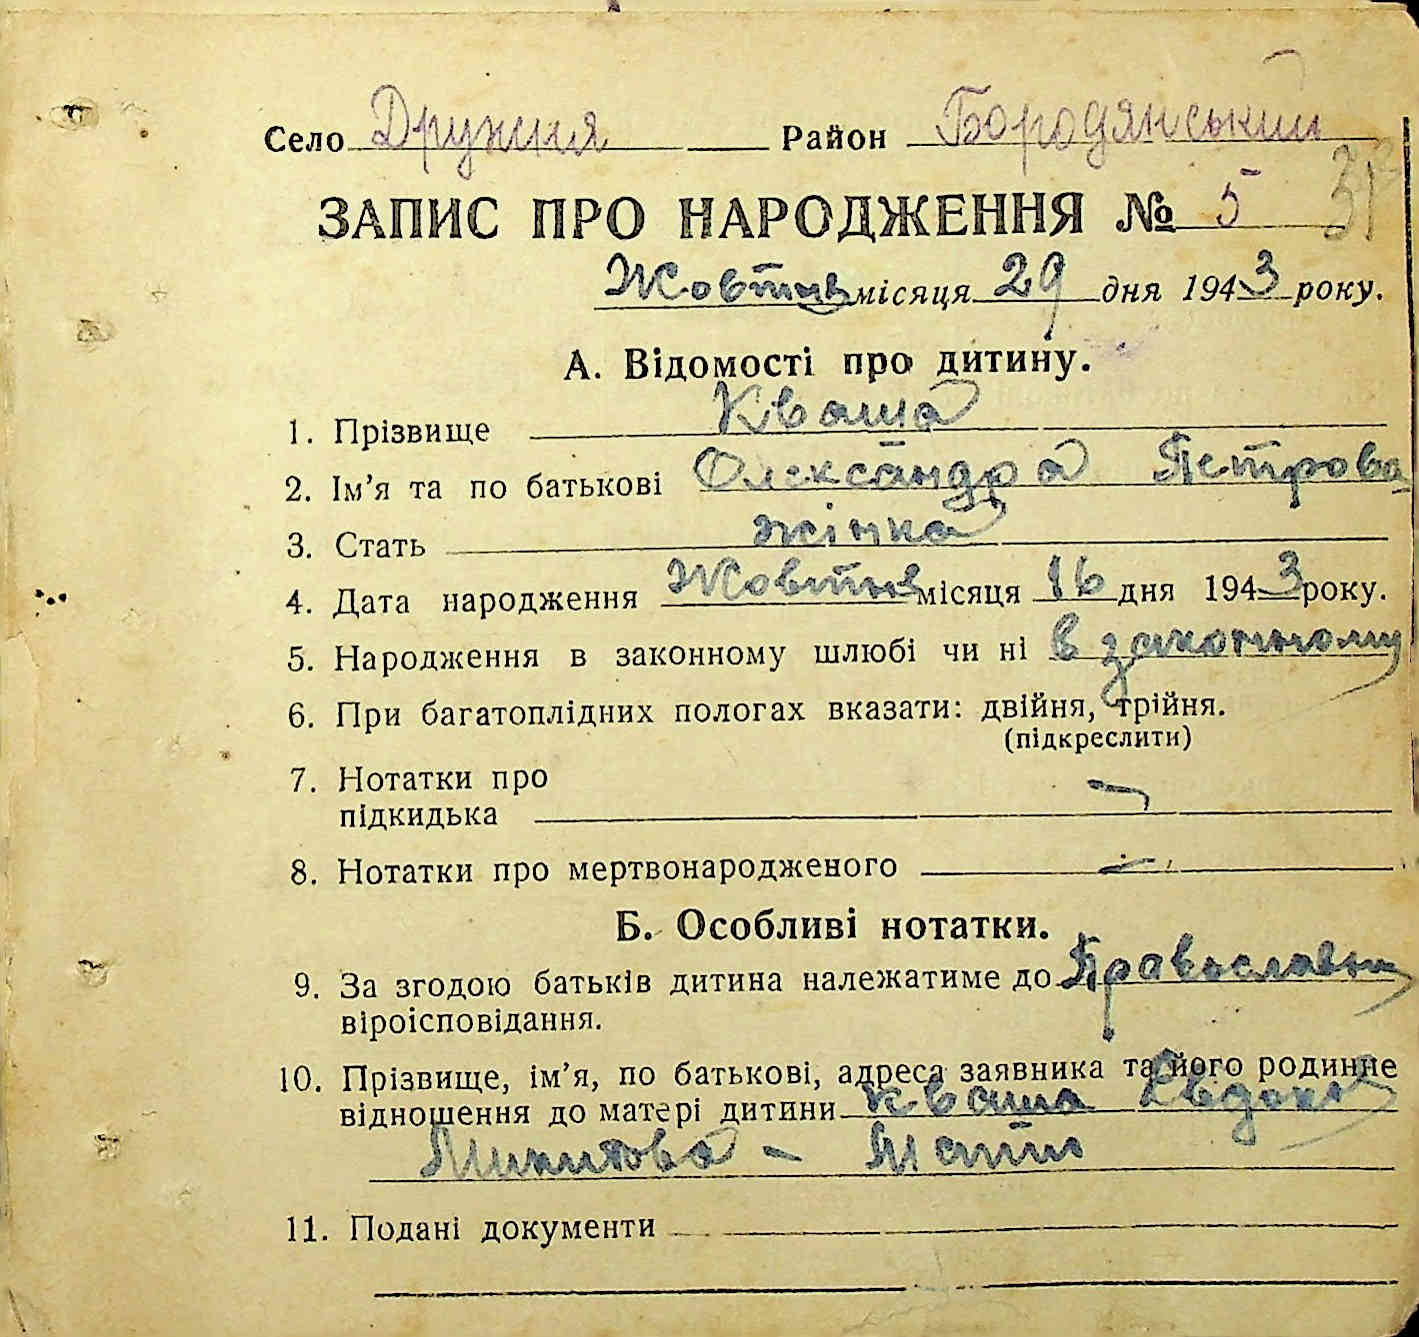 Село Дружня Район Бородянський
ЗАПИС ПРО НАРОДЖЕННЯ № 5
Жовтня місяця 29 дня 1943 року.
А. Відомості про дитину.
1. Прізвище Кваша
2. Ім'я та по батькові Олександра Петрова
3. Стать жінка
4. Дата народження Жовтня місяця 16 дня 1943 року.
5. Народження в законному шлюбі чи ні в законному
6. При багатоплідних пологах вказати: двійня, трійня.
(підкреслити)
7. Нотатки про
підкидька —
8. Нотатки про мертвонародженого —
Б. Особливі нотатки.
9. За згодою батьків дитина належатиме до
віроісповідання.
10. Прізвище, ім'я, по батькові, адреса заявника та його родинне
відношення до матері дитини Кваша
Микитова - Мати
11. Подані документи